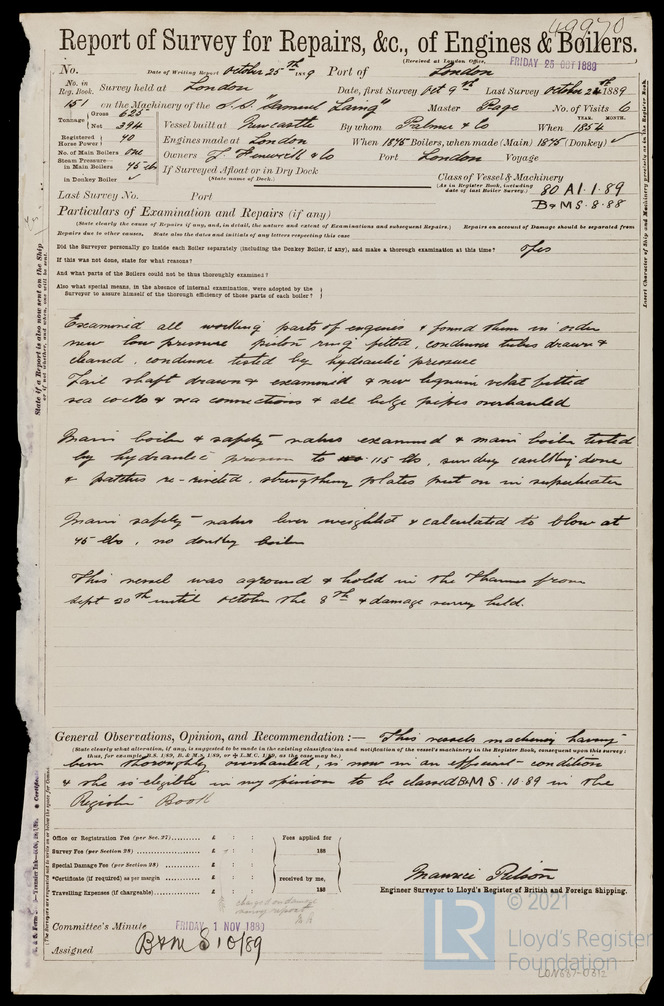 49970
Report of Survey for Repairs, &c., of Engines & Boilers.
(Received at London Office, FRIDAY 25 OCT 1889
No. Date of Writing Report October 25th 1889 Port of London
No. in Reg. Book. Survey held at London Date, first Survey Oct 9th Last Survey October 24th 1889
151 on the Machinery of the S.S. "Samuel Laing" Master Page No. of Visits 6
Tonnage Gross 625 Net 394 Vessel built at Newcastle By whom Palmer & Co When 1854 YEAR. MONTH.
Registered Horse Power 90 Engines made at London When 1875 Boilers, when made (Main) 1875 (Donkey) ✓
No. of Main Boilers one Owners J. Fenwick & Co Port London Voyage
Steam Pressure in Main Boilers 45 lbs If Surveyed Afloat or in Dry Dock
(State name of Dock.)
in Donkey Boiler ✓ Class of Vessel & Machinery
(As in Register Book, including date of last Boiler Survey.) 80 A1. 1.89
B&MS. 8.88
Last Survey No. Port
Particulars of Examination and Repairs (if any)
(State clearly the cause of Repairs if any, and, in detail, the nature and extent of Examinations and subsequent Repairs.) Repairs on account of Damage should be separated from
Repairs due to other causes. State also the dates and initials of any letters respecting this case
Did the Surveyor personally go inside each Boiler separately (including the Donkey Boiler, if any), and make a thorough examination at this time? Yes
If this was not done, state for what reasons?
And what parts of the Boilers could not be thus thoroughly examined?
Also what special means, in the absence of internal examination, were adopted by the
Surveyor to assure himself of the thorough efficiency of those parts of each boiler?
Examined all working parts of engines & found them in order
new low pressure piston ring fitted, condenser tubes drawn &
cleaned, condenser tested by hydraulic pressure
Tail shaft drawn & examined & new lignum vitae fitted
sea cocks & sea connections & all bilge pipes overhauled
Main boiler & safety valves examined & main boiler tested
by hydraulic pressure to 115 lbs, sundry caulking done
& patches re-riveted, strengthening plates put on in superheater
Main safety valves lever weighted & calculated to blow at
45 lbs, no donkey boiler
This vessel was aground & holed in the Thames from
Sept 20th until October the 8th & damage survey held.
General Observations, Opinion, and Recommendation :— This vessels machinery having
(State clearly what alteration, if any, is suggested to be made in the existing classification and notification of the vessel's machinery in the Register Book, consequent upon this survey;
thus, for example, B.S. 1/89, B. & M.S. 1/89, or L.M.C. 1/89, as the case may be.)
been thoroughly overhauled, is now in an efficient condition
& she is eligible in my opinion to be classed B&MS. 10.89 in the
Register Book
Office or Registration Fee (per Sec. 27) £ : : Fees applied for
Survey Fee (per Section 28) £ : : 188
Special Damage Fee (per Section 28) £ : :
*Certificate (if required) as per margin £ : : received by me,
Travelling Expenses (if chargeable) £ : : 188
charged on damage
survey report
Engineer Surveyor to Lloyd's Register of British and Foreign Shipping.
Committee's Minute FRIDAY 1 NOV 1889
Assigned B&MS 10/89
State if a Report is also now sent on the Ship
or if not whether, and when, one will be sent.
Insert Character of Ship and Machinery precisely as in the Register Book.
© 2021
LR
Lloyd's Register
Foundation
LON687-0312